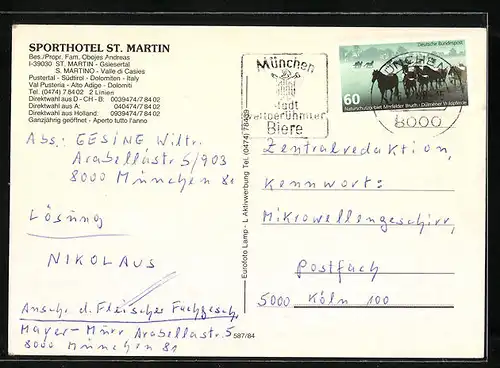 SPORTHOTEL ST. MARTIN
Bes./Propr. Fam. Obojes Andreas
I-39030 ST. MARTIN - Gsiesertal
S. MARTINO - Valle di Casies
Pustertal - Südtirol - Dolomiten - Italy
Val Pusteria - Alto Adige - Dolomiti
Tel. (0474) 7 84 02 2 Linien
Direktwahl aus D - CH - B: 0039474/7 84 02
Direktwahl aus A: 040474/7 84 02
Direktwahl aus Holland: 0939474/7 84 02
Ganzjährig geöffnet - Aperto tutto l'anno
Abs.: GESINE Wiltr.
Arabellastr 5/903
8000 München 81
Lösung
NIKOLAUS
Anschr. d. Fleischer Fachgesch.
Mayer-Murr Arabellastr. 5
8000 München 81
587/84
Eurofoto Lamp - L Aktivwerbung Tel. (0474) 784
München
Stadt
weltberühmter
Biere
Deutsche Bundespost
60
Naturschutzgebiet Merfelder Bruch · Dülmener Wildpferde
MÜNCHEN
8000
Zentralredaktion,
Kennwort:
Mikrowellengeschirr,
Postfach
5000 Köln 100